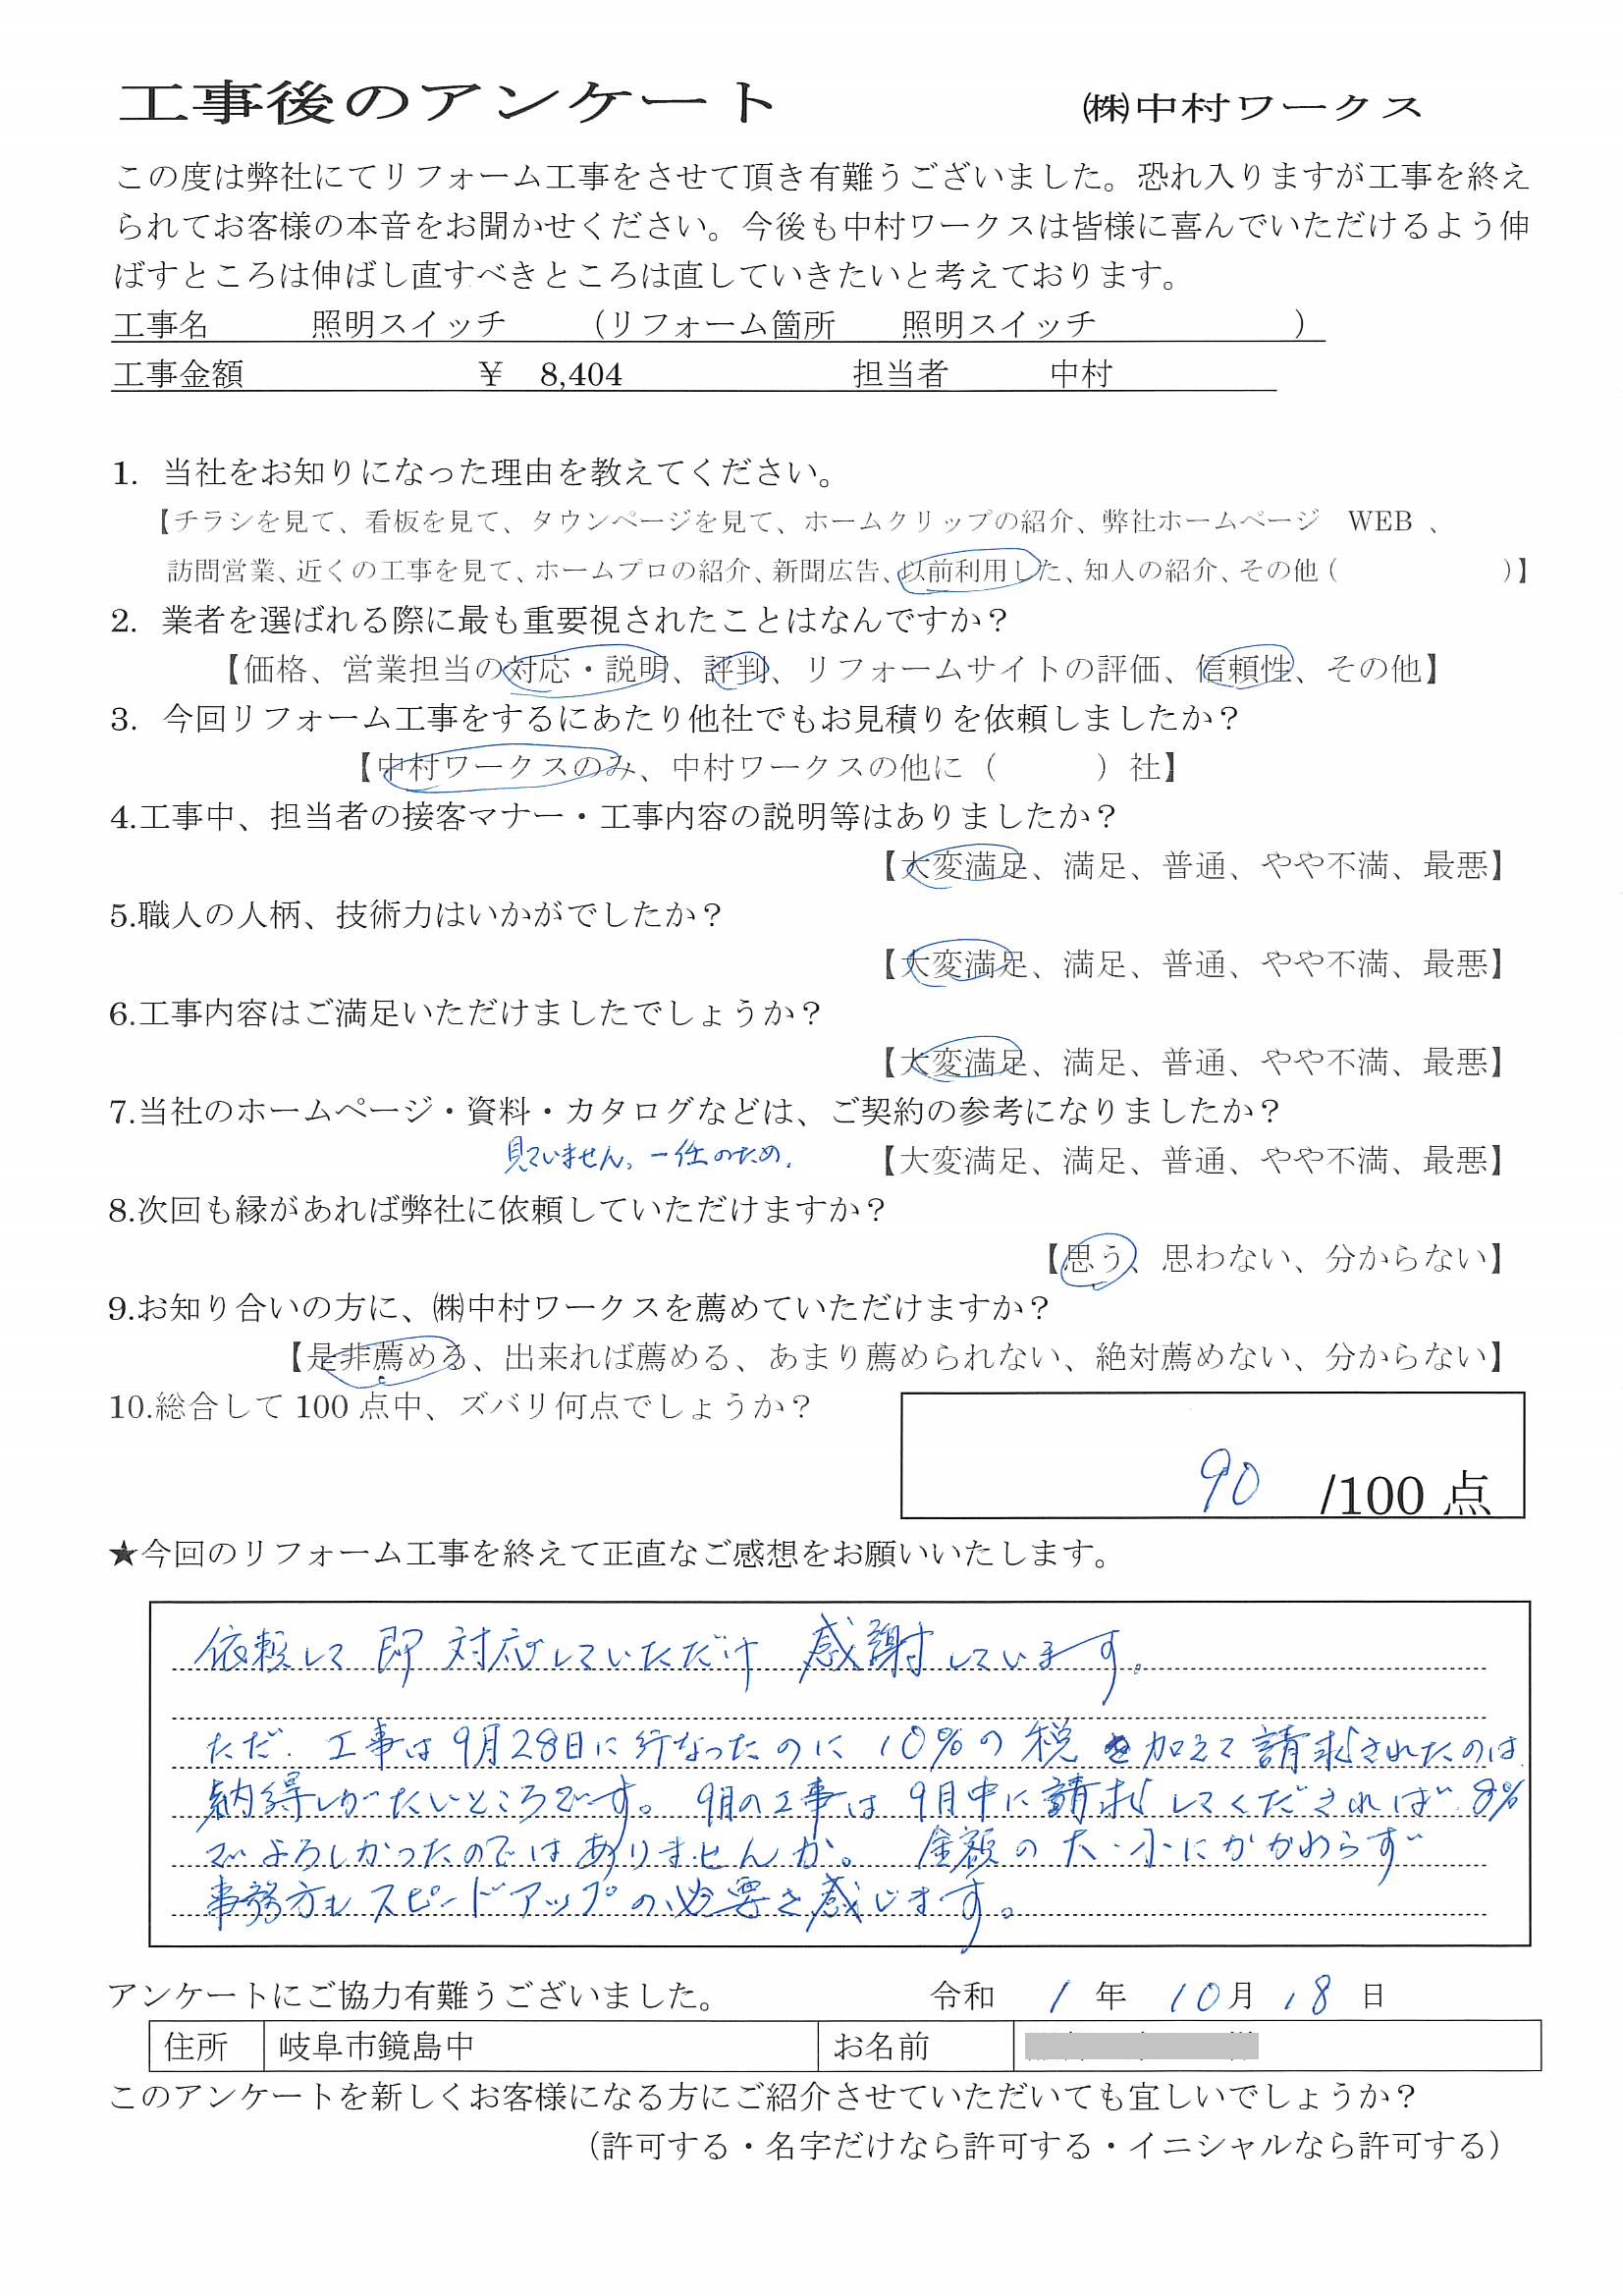 工事後のアンケート ㈱中村ワークス
この度は弊社にてリフォーム工事をさせて頂き有難うございました。恐れ入りますが工事を終え
られてお客様の本音をお聞かせください。今後も中村ワークスは皆様に喜んでいただけるよう伸
ばすところは伸ばし直すべきところは直していきたいと考えております。
工事名 照明スイッチ （リフォーム箇所 照明スイッチ ）
工事金額 ￥ 8,404 担当者 中村
1. 当社をお知りになった理由を教えてください。
【チラシを見て、看板を見て、タウンページを見て、ホームクリップの紹介、弊社ホームページ WEB 、
訪問営業、近くの工事を見て、ホームプロの紹介、新聞広告、以前利用した、知人の紹介、その他（ ）】
2. 業者を選ばれる際に最も重要視されたことはなんですか？
【価格、営業担当の対応・説明、評判、リフォームサイトの評価、信頼性、その他】
3. 今回リフォーム工事をするにあたり他社でもお見積りを依頼しましたか？
【中村ワークスのみ、中村ワークスの他に（ ）社】
4.工事中、担当者の接客マナー・工事内容の説明等はありましたか？
【大変満足、満足、普通、やや不満、最悪】
5.職人の人柄、技術力はいかがでしたか？
【大変満足、満足、普通、やや不満、最悪】
6.工事内容はご満足いただけましたでしょうか？
【大変満足、満足、普通、やや不満、最悪】
7.当社のホームページ・資料・カタログなどは、ご契約の参考になりましたか？
見ていません、一任のため. 【大変満足、満足、普通、やや不満、最悪】
8.次回も縁があれば弊社に依頼していただけますか？
【思う、思わない、分からない】
9.お知り合いの方に、㈱中村ワークスを薦めていただけますか？
【是非薦める、出来れば薦める、あまり薦められない、絶対薦めない、分からない】
10.総合して 100 点中、ズバリ何点でしょうか？
90 /100 点
★今回のリフォーム工事を終えて正直なご感想をお願いいたします。
依頼して即対応していただけ 感謝しています。
ただ、工事は9月28日に行なったのに 10%の税を加えて請求されたのは
納得しがたいところです。9月の工事は9月中に請求してくだされば 8%
でよろしかったのではありませんか。 金額の大・小にかかわらず
事務方もスピードアップの必要を感じます。
アンケートにご協力有難うございました。 令和 1 年 10 月 18 日
住所 岐阜市鏡島中 お名前
このアンケートを新しくお客様になる方にご紹介させていただいても宜しいでしょうか？
（許可する・名字だけなら許可する・イニシャルなら許可する）